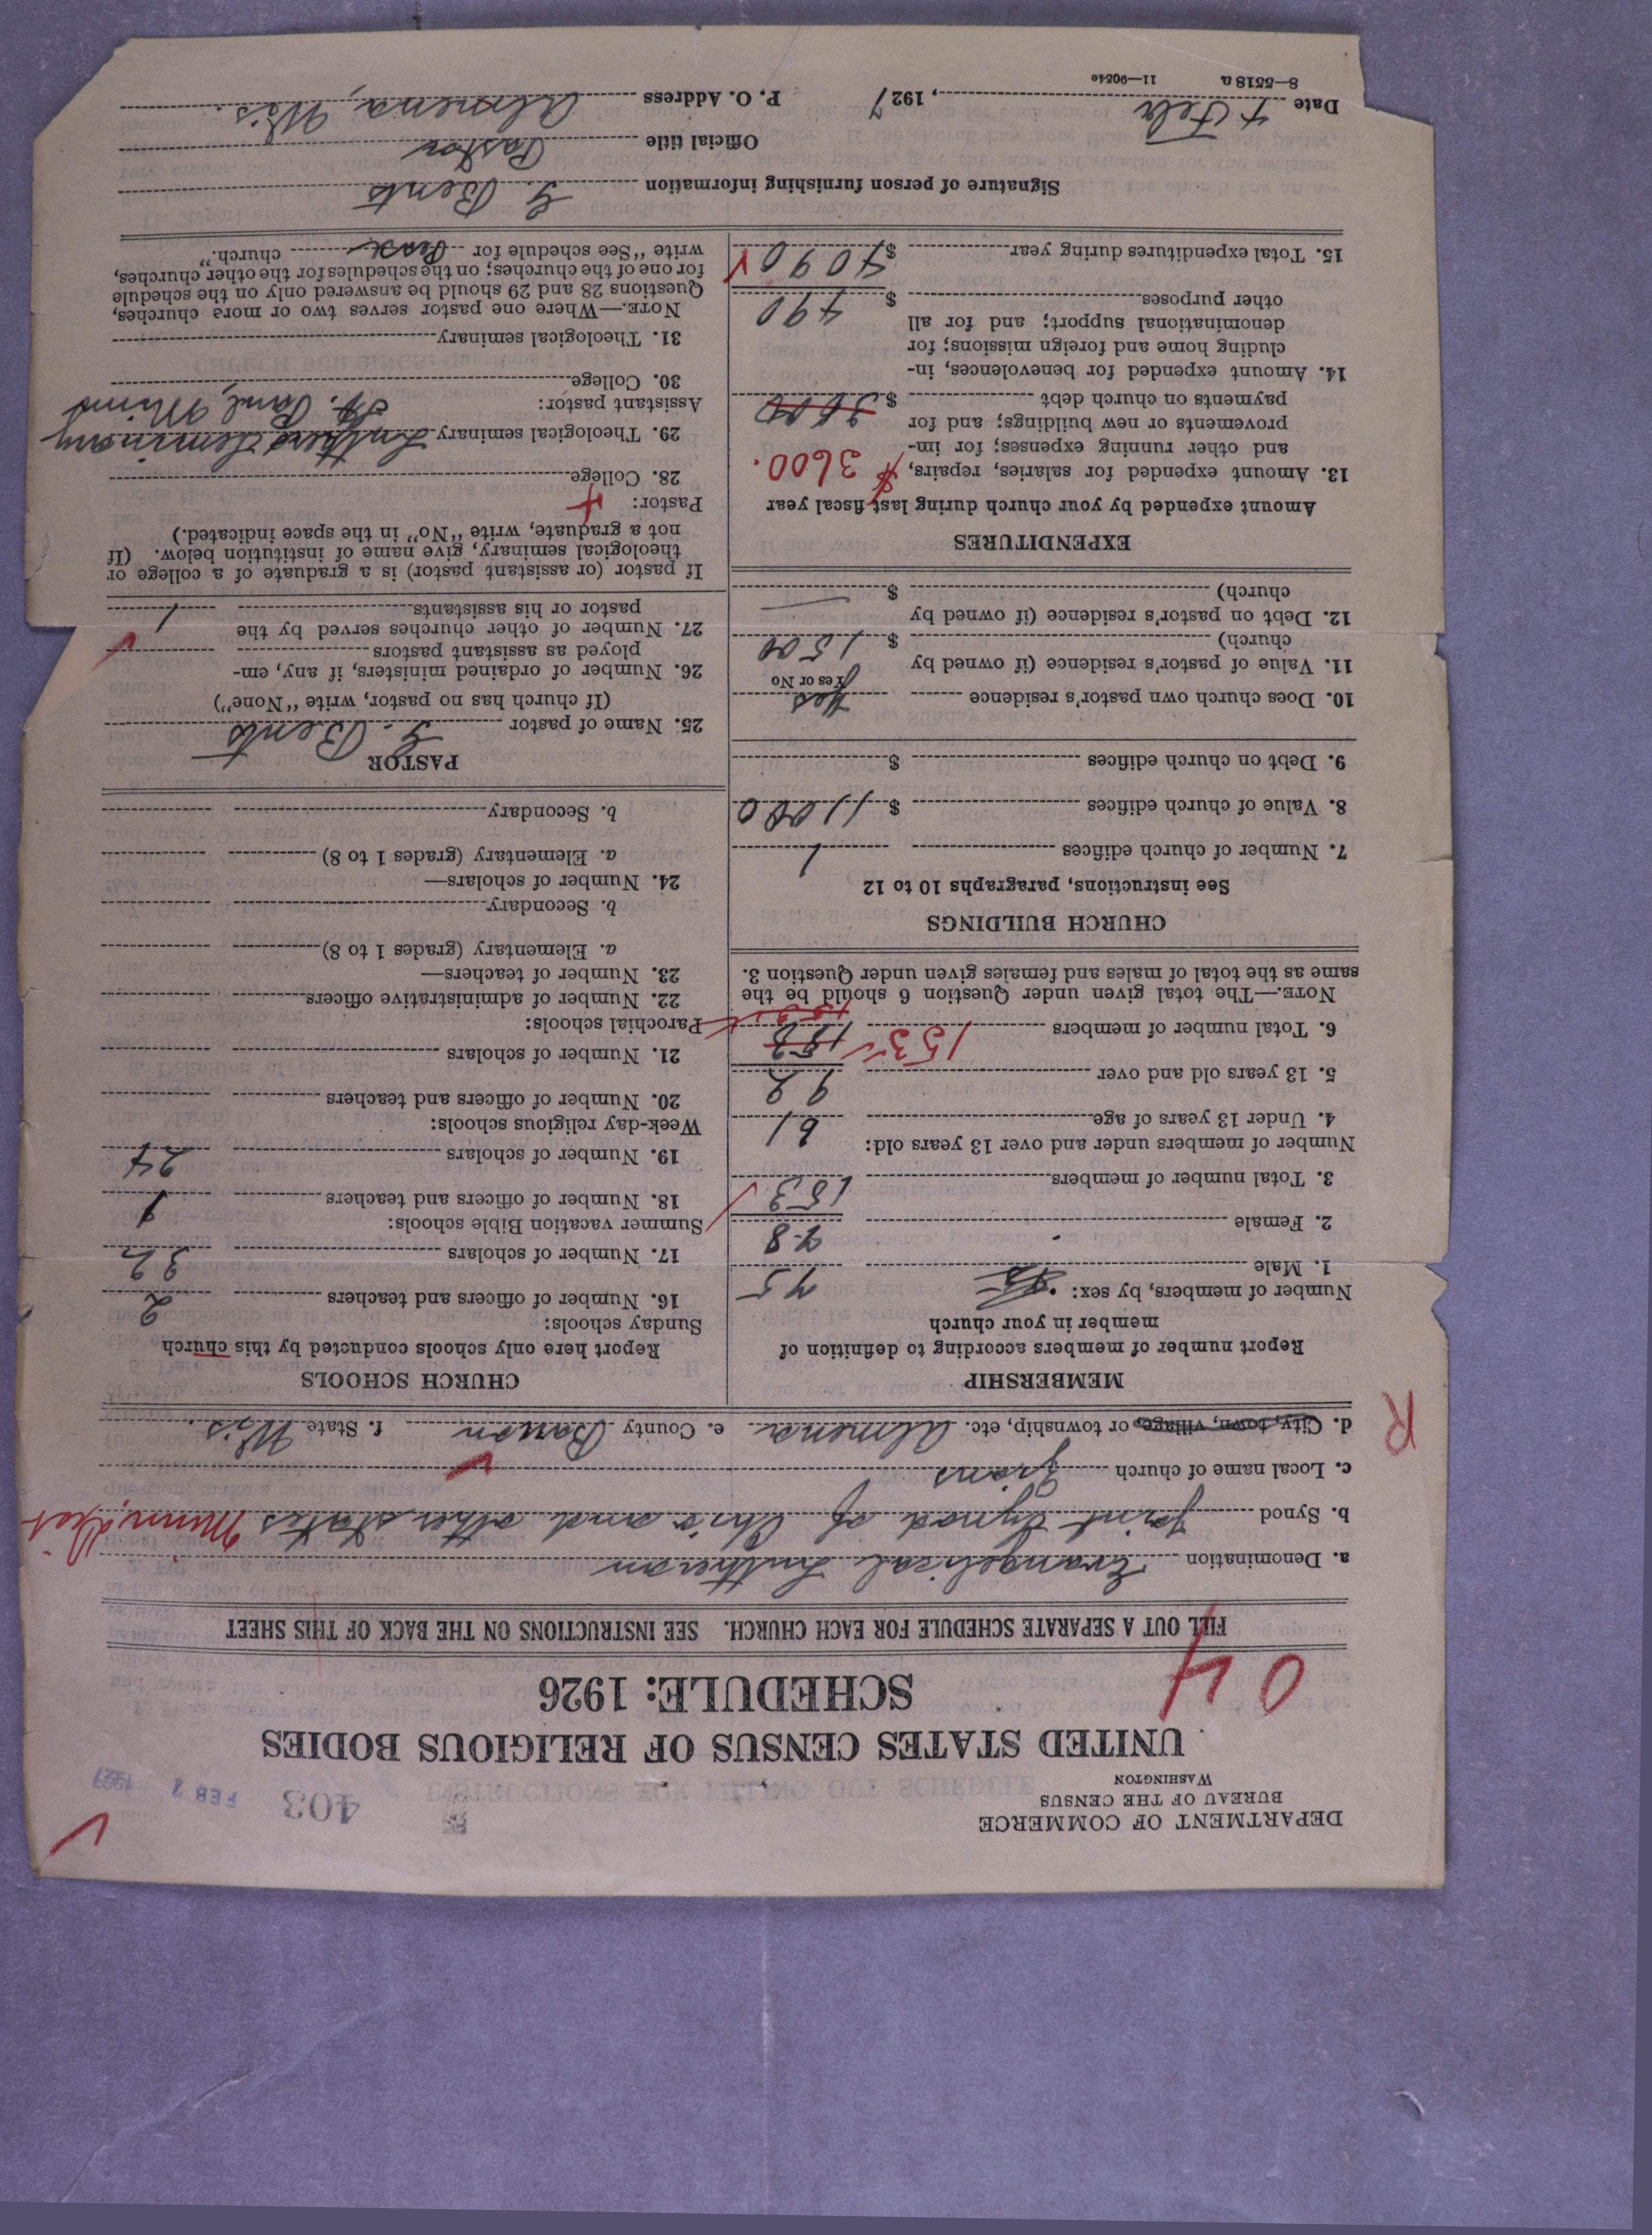 DEPARTMENT OF COMMERCE
BUREAU OF THE CENSUS
WASHINGTON
403
FEB 1927
UNITED STATES CENSUS OF RELIGIOUS BODIES
SCHEDULE: 1926
04
FILL OUT A SEPARATE SCHEDULE FOR EACH CHURCH. SEE INSTRUCTIONS ON THE BACK OF THIS SHEET
a. Denomination Evangelical Lutheran
b. Synod Joint Synod of Ohio and other states Minn. Dist
c. Local name of church Zions
d. City, town, village, or township, etc. Almena e. County Barron f. State Wis.
R
MEMBERSHIP
Report number of members according to definition of
member in your church
Number of members, by sex:
1. Male 75
2. Female 78
3. Total number of members 153
Number of members under and over 13 years old:
4. Under 13 years of age 61
5. 13 years old and over 92
6. Total number of members 153
NOTE.—The total given under Question 6 should be the
same as the total of males and females given under Question 3.
CHURCH BUILDINGS
See instructions, paragraphs 10 to 12
7. Number of church edifices 1
8. Value of church edifices $ 11000
9. Debt on church edifices $
10. Does church own pastor's residence Yes
Yes or No
11. Value of pastor's residence (if owned by
church) $ 1500
12. Debt on pastor's residence (if owned by
church) $ —
EXPENDITURES
Amount expended by your church during last fiscal year
13. Amount expended for salaries, repairs, $ 3600.
and other running expenses; for im-
provements or new buildings; and for
payments on church debt $ 3600
14. Amount expended for benevolences, in-
cluding home and foreign missions; for
denominational support; and for all
other purposes $ 490
15. Total expenditures during year $ 4090
CHURCH SCHOOLS
Report here only schools conducted by this church
Sunday schools:
16. Number of officers and teachers 2
17. Number of scholars 32
Summer vacation Bible schools:
18. Number of officers and teachers 1
19. Number of scholars 24
Week-day religious schools:
20. Number of officers and teachers
21. Number of scholars
Parochial schools:
22. Number of administrative officers
23. Number of teachers—
a. Elementary (grades 1 to 8)
b. Secondary
24. Number of scholars—
a. Elementary (grades 1 to 8)
b. Secondary
PASTOR
25. Name of pastor G. Bents
(If church has no pastor, write "None")
26. Number of ordained ministers, if any, em-
ployed as assistant pastors
27. Number of other churches served by the
pastor or his assistants 1
If pastor (or assistant pastor) is a graduate of a college or
theological seminary, give name of institution below. (If
not a graduate, write "No" in the space indicated.)
Pastor:
28. College
29. Theological seminary Luther Seminary
St. Paul, Minn
Assistant pastor:
30. College
31. Theological seminary
NOTE.—Where one pastor serves two or more churches,
Questions 28 and 29 should be answered only on the schedule
for one of the churches; on the schedules for the other churches,
write "See schedule for church."
Signature of person furnishing information G. Bents
Official title Pastor
Date 4 Feb, 1927 P. O. Address Almena, Wis.
8—5518 a 11—9054e